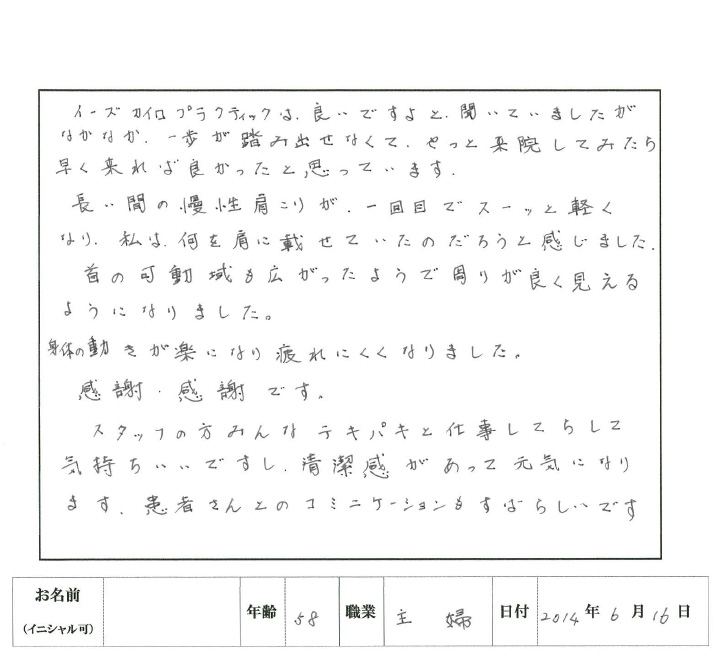 イーズカイロプラクティックは、良いですよと、聞いていましたが
なかなか、一歩が踏み出せなくて、やっと来院してみたら
早く来れば良かったと思っています。
長い間の慢性肩こりが、一回目でスーッと軽く
なり、私は、何を肩に載せていたのだろうと感じました。
首の可動域も広がったようで周りが良く見える
ようになりました。
身体の動きが楽になり疲れにくくなりました。
感謝・感謝です。
スタッフの方みんなテキパキと仕事してらして
気持ちいいですし、清潔感があって元気になり
ます、患者さんとのコミニケーションもすばらしいです
お名前 年齢 58 職業 主婦 日付 2014年6月16日
(イニシャル可)